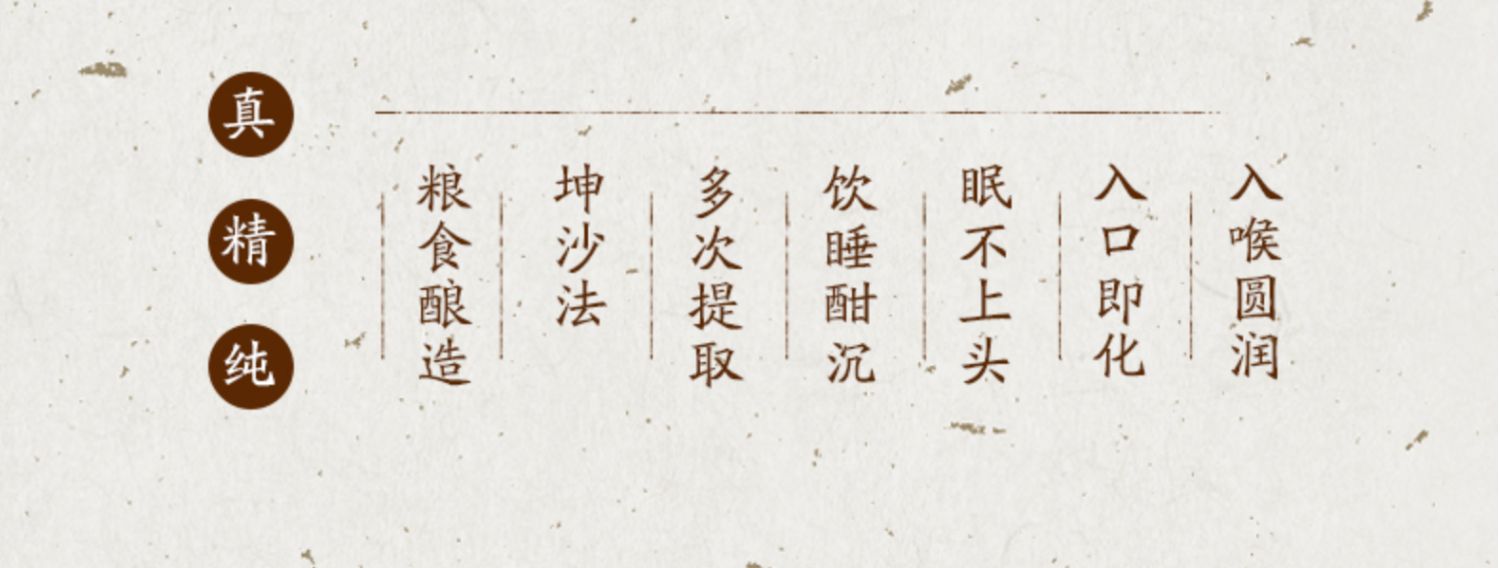 真
精
纯
粮食酿造
坤沙法
多次提取
饮睡酣沉
眠不上头
入口即化
入喉圆润